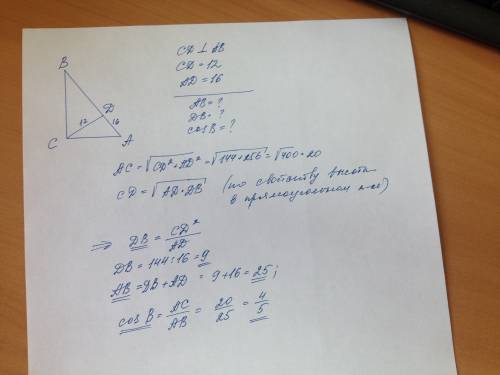 B
D
12
16
C
A
CD ⊥ AB
CD = 12
AD = 16
AB = ?
DB = ?
cos B = ?
AC = √CD² + AD² = √144 + 256 = √400 = 20
CD = √AD · DB (по свойству высоты
в прямоугольном)
=> DB = CD² / AD
DB = 144 : 16 = 9
AB = DB + AD = 9 + 16 = 25;
cos B = AC / AB = 20 / 25 = 4 / 5